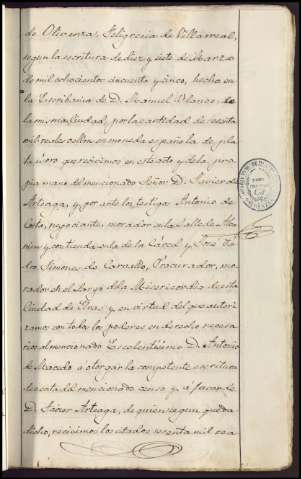 de Olivenza, Feligresia de Villarreal,
segun la escritura de diez y siete de Marzo
de mil ochocientos cincuenta y cinco, hecha en
la Escribania de D. Manuel Blanco, de
la misma Ciudad, por la cantidad de sesenta
mil reales vellon en moneda española de pla
ta ú oro que recivimos en este acto y de la pro
pia mano del mencionado Señor D. Javier de
Arteaga, y por ante los testigos Antonio da
Costa, negociante, morador en la Calle de
y con tienda en la de la Carcel, y José
Simones de Carvallo, Procurador, mo
rador en el Largo de la Misericordia de esta
Ciudad de Elvas, y en virtud del que autori
zamos con todos los poderes en derecho necesa
rios al mencionado Escelentisimo D. Antonio
de Macedo á otorgar la competente escritura
de venta del mencionado censo y á favor de
D. Javier Arteaga, de quien segun queda
dicho, recivimos los citados sesenta mil rea